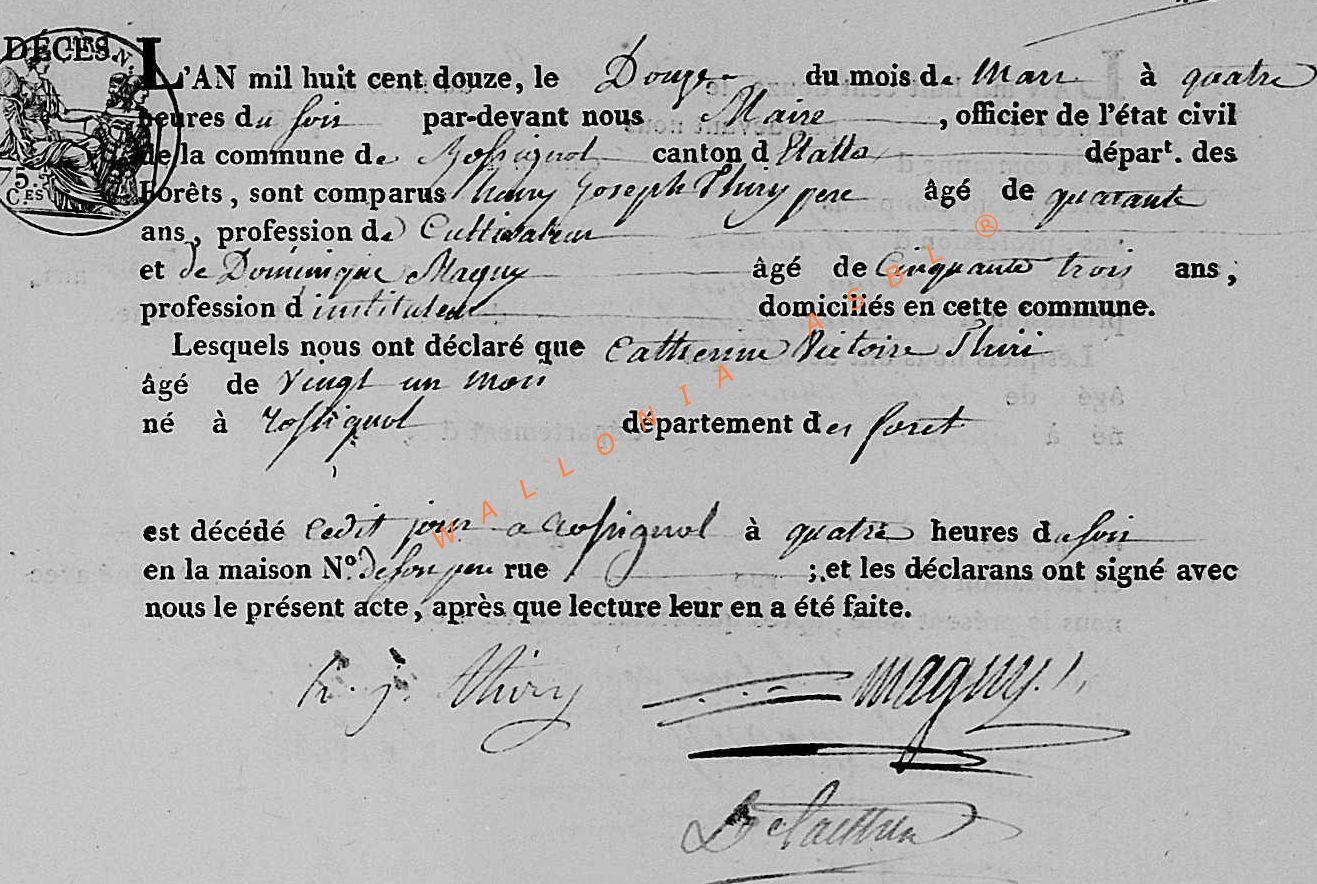 DÉCES.
L'AN mil huit cent douze, le Douze du mois de Mars à quatre
heures du soir par-devant nous Maire, officier de l'état civil
de la commune de Rossignol canton d'Etalle départ. des
Forêts, sont comparus henry Joseph Thiry pere âgé de quarante
ans, profession de Cultivateur
et de Dominique Maguy âgé de Cinquante trois ans,
profession d instituteur domiciliés en cette commune.
Lesquels nous ont déclaré que Catherine Victoire Thiri
âgé de vingt un mois
né à rossignol département des foret
est décédé ledit jour a rossignol à quatre heures du soir
en la maison N.º de son pere rue ; et les déclarans ont signé avec
nous le présent acte, après que lecture leur en a été faite.
h. j. thiry maguy
75.
CES
WALLONIA ASBL ®